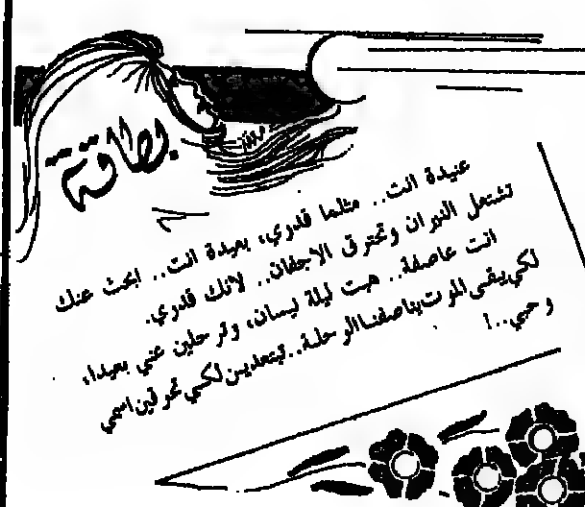 بطاقة
عنيدة انت.. مثلما قدري، بعيدة انت.. ابحث عنك
تشتعل النيران وتحترق الاجفان.. لانك قدري.
انت عاصفة.. هبت ليلة نيسان، وترحلين عني بعيدا،
لكي يبقى الموت يناصفنا الرحلة.. تبتعدين لكي تحرقين اسمي
وحبي..!